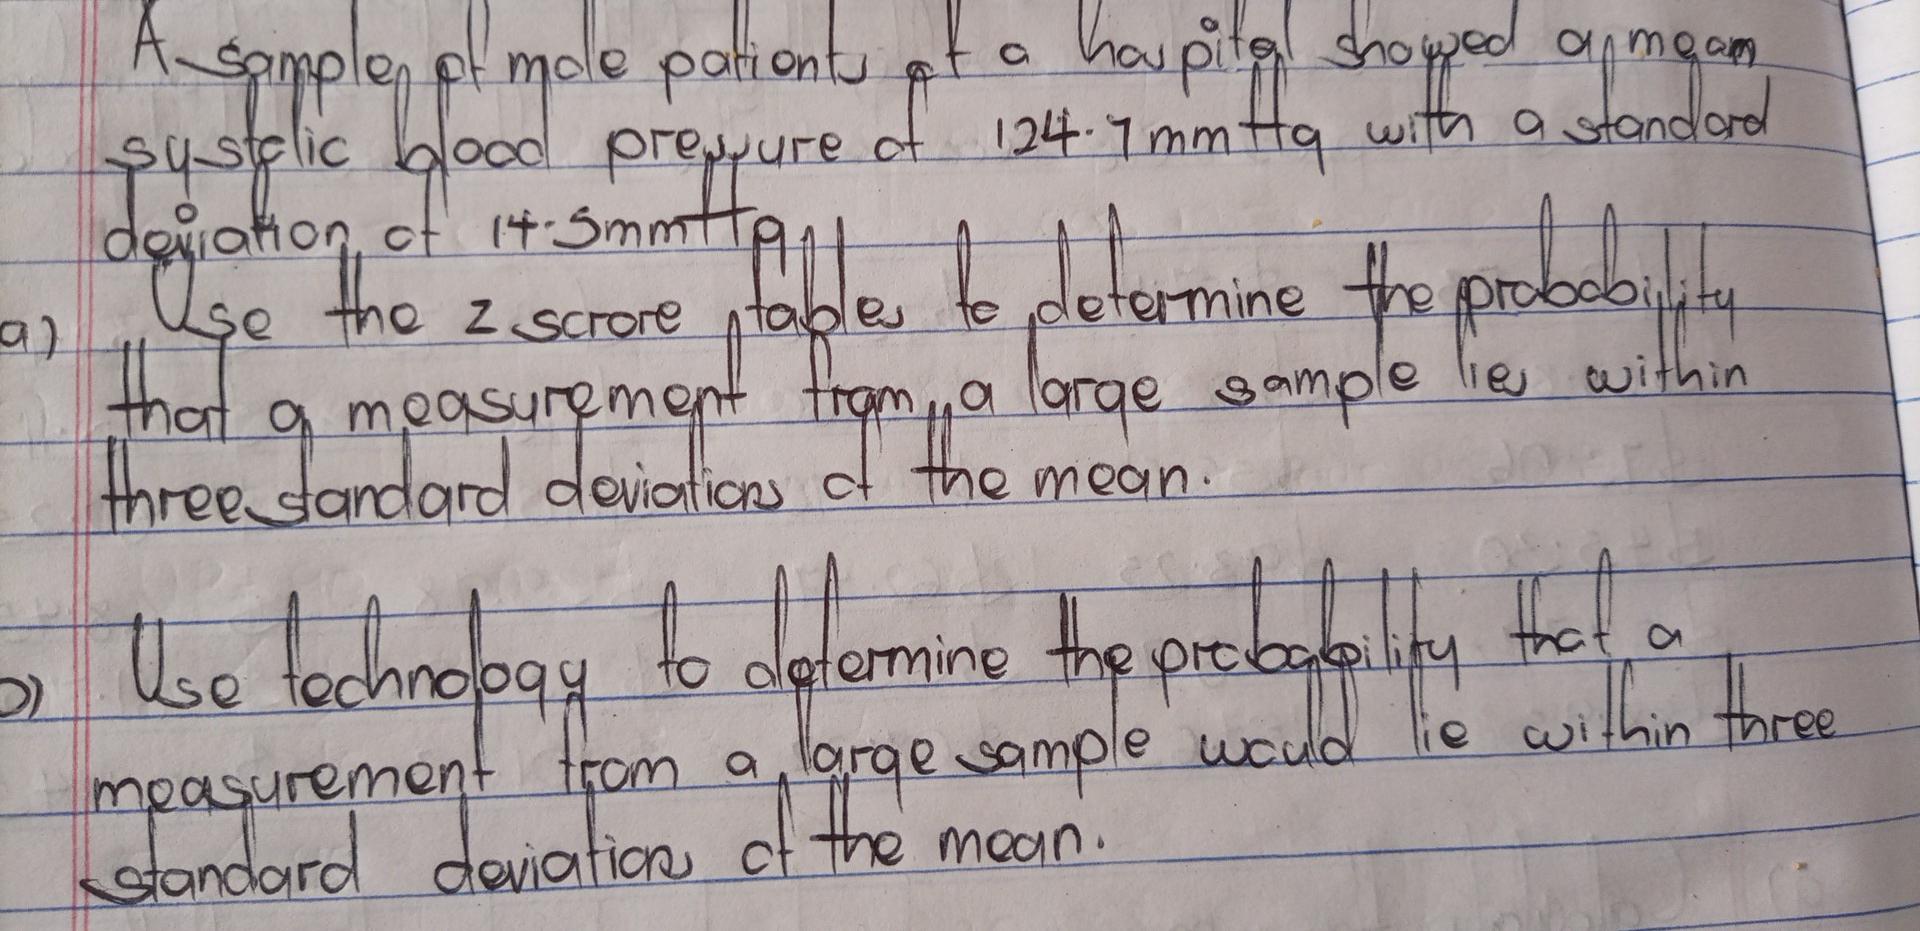 A sample of male patients at a hospital showed a mean
systolic blood pressure of 124.7mmHg with a standard
deviation of 14.5mmHg
a) Use the z scrore tables to determine the probability
that a measurement from a large sample lies within
three standard deviations of the mean.
b) Use technology to determine the probability that a
measurement from a large sample would lie within three
standard deviations of the mean.